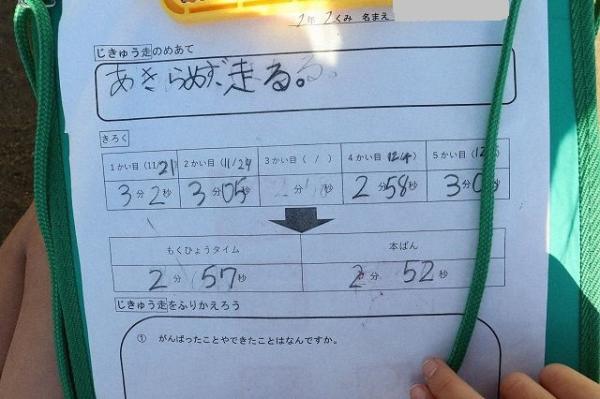 2年 2くみ 名まえ
じきゅう走のめあて
あきらめず、走る。
きろく
1かい目（11/21） 2かい目（11/24） 3かい目（ / ） 4かい目（12/4） 5かい目（12/
3分2秒 3分05秒 分 秒 2分58秒 3分0
もくひょうタイム 本ばん
2分57秒 2分52秒
じきゅう走をふりかえろう
① がんばったことやできたことはなんですか。